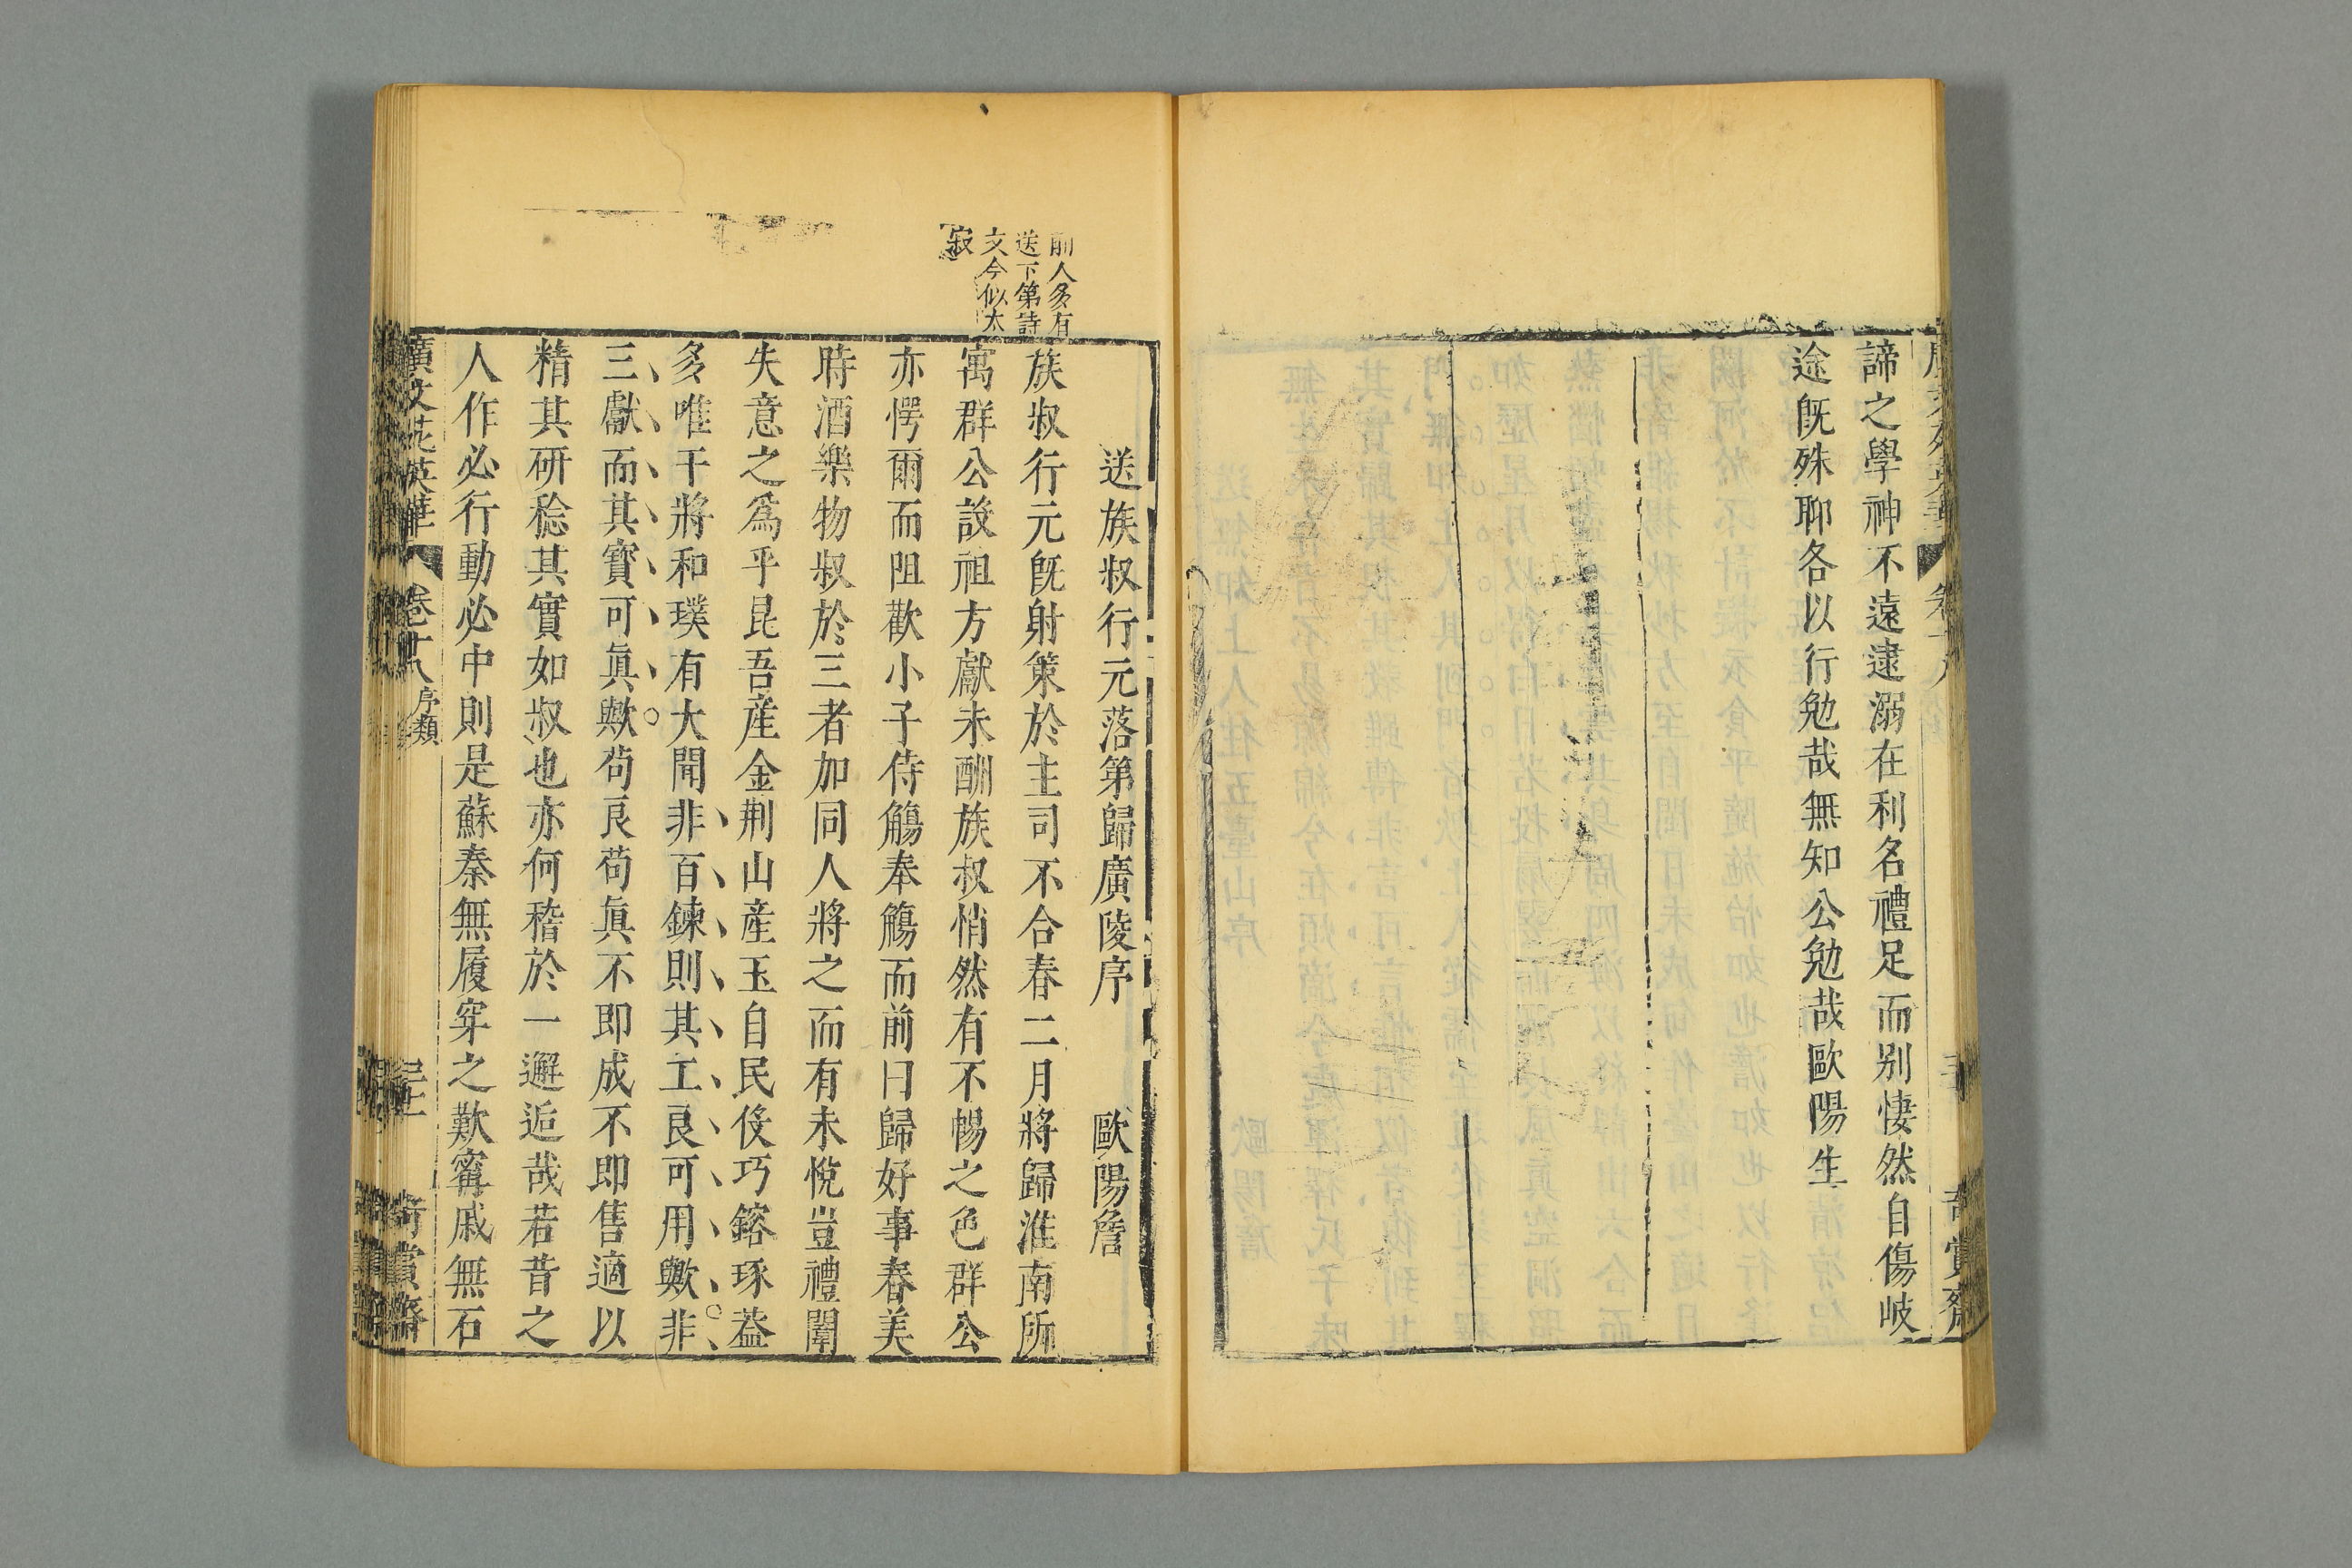 諦之學神不遠逮溺在利名禮足而别悽然自傷岐
途旣殊聊各以行勉哉無知公勉哉歐陽生
前人多有
送下第詩
文今似太
寂
送族叔行元落第歸廣陵序 歐陽詹
族叔行元旣射策於主司不合春二月將歸淮南所
寓群公設祖方獻未酬族叔悄然有不暢之色群公
亦愕爾而阻歡小子侍觴奉觴而前曰歸好事春美
時酒樂物叔於三者加同人將之而有未悅豈禮闈
失意之爲乎昆吾産金荆山産玉自民伎巧鎔琢葢
多唯干將和璞有大聞非百鍊則其工良可用歟非
三獻而其寶可眞歟苟良苟眞不即成不即售適以
精其研稔其實如叔也亦何稽於一邂逅哉若昔之
人作必行動必中則是蘇秦無履穿之歎甯戚無石
廣文苑英華 卷十八 序類 奇賞齋